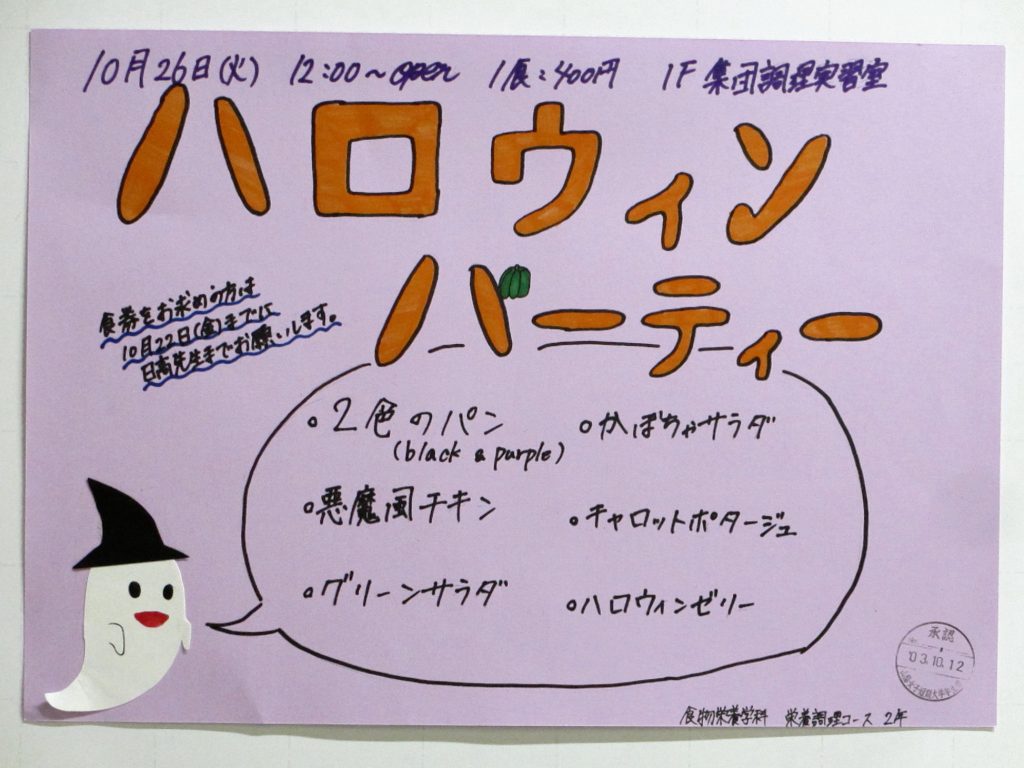 10月26日(火) 12:00～open 1食:400円 1F 集団調理実習室
ハロウィン
パーティー
食券をお求めの方は
10月22日(金)までに
日高先生までお願いします。
・2色のパン
(black & purple)
・かぼちゃサラダ
・悪魔風チキン
・キャロットポタージュ
・グリーンサラダ
・ハロウィンゼリー
承認
'03.10.12
食物栄養学科 栄養調理コース 2年